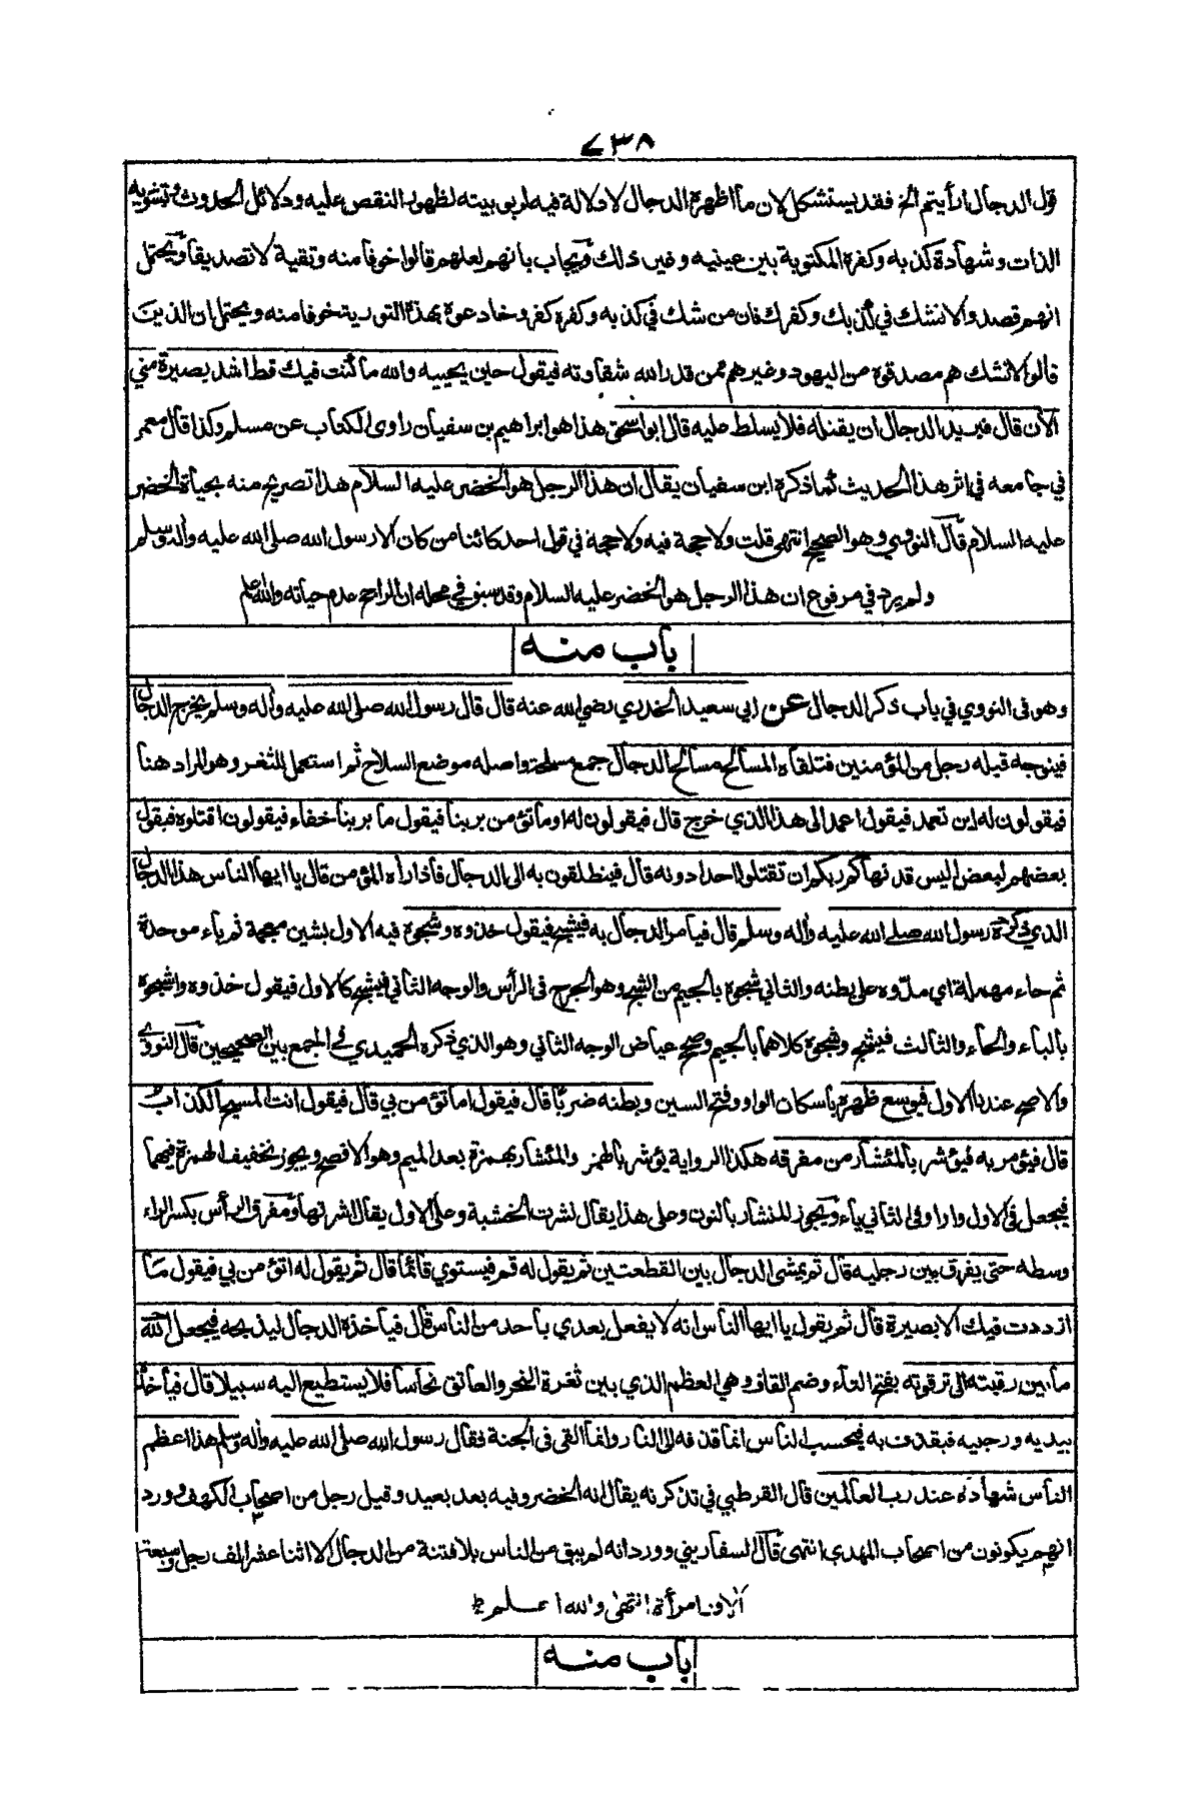 ٧٣٨
قول الدجال أرأيتم الخ فقد يستشكل لان ما اظهره الدجال لا دلالة فيه لربوبيته لظهور النقص عليه ودلائل الحدوث وتشويه
الذات وشهادة كذبه وكفره المكتوبة بين عينيه وغير ذلك ويجاب بانهم لعلهم قالوا خوفا منه وتقية لا تصديقا ويحتمل
انهم قصدوا لا نشك في كذبك وكفرك فان من شك في كذبه وكفره كفر وخادعوه بهذه التورية خوفا منه ويحتمل ان الذين
قالوا لا نشك هم مصدقوه من اليهود وغيرهم ممن قدر الله شقاوته فيقول حين يحييه والله ما كنت فيك قط اشد بصيرة مني
الآن قال فيريد الدجال ان يقتله فلا يسلط عليه قال ابو اسحق هذا هو ابراهيم بن سفيان راوى الكتاب عن مسلم وكذا قال معمر
في جامعه في اثر هذا الحديث كما ذكره ابن سفيان يقال ان هذا الرجل هو الخضر عليه السلام هذا تصريح منه بحياة الخضر
عليه السلام قال النووي وهو الصحيح انتهى قلت ولا حجة فيه ولا حجة في قول احد كائنا من كان الا رسول الله صلى الله عليه وآله وسلم
ولم يرد في مرفوع ان هذا الرجل هو الخضر عليه السلام وقد سبق في محله ان الراجح عدم حياته والله اعلم
باب منه
وهو فى النووي في باب ذكر الدجال عن ابي سعيد الخدري رضي الله عنه قال قال رسول الله صلى الله عليه وآله وسلم يخرج الدجال
فيتوجه قبله رجل من المؤمنين فتلقاه المسالح مسالح الدجال جمع مسلحة واصله موضع السلاح ثم استعمل للثغر وهو المراد هنا
فيقولون له اين تعمد فيقول اعمد الى هذا الذي خرج قال فيقولون له او ما تؤمن بربنا فيقول ما بربنا خفاء فيقولون اقتلوه فيقول
بعضهم لبعض اليس قد نهاكم ربكم ان تقتلوا احدا دونه قال فينطلقون به الى الدجال فاذا رأه المؤمن قال يا ايها الناس هذا الدجال
الذي ذكره رسول الله صلى الله عليه وأله وسلم قال فيأمر الدجال به فيشبح فيقول خذوه وشجوه فيه الاول بشين معجمة ثم باء موحدة
ثم حاء مهملة اي مدّوه على بطنه والثاني شجوه بالجيم من الشج وهو الجرح فى الرأس والوجه الثاني فيشج كالاول فيقول خذوه واشبحوه
بالباء والحاء والثالث فيشج وشجوه كلاهما بالجيم وصحح عياض الوجه الثاني وهو الذي ذكره الحميدي في الجمع بين الصحيحين قال النووي
والاصح عندنا الاول فيوسع ظهره بأسكان الواو وفتح السين وبطنه ضربًا قال فيقول اما تؤمن بي قال فيقول انت المسيح الكذاب
قال فيؤمر به فيؤشر بالمئشار من مفرقه هكذا الرواية يؤشر بالهمز والمئشار بهمزة بعد الميم وهو الافصح ويجوز تخفيف الهمزة فيهما
فيجعل فى الاول واوا وفى الثاني ياء ويجوز المنشار بالنون وعلى هذا يقال نشرت الخشبة وعلى الاول يقال اشرتها ومفرق الرأس بكسر الراء
وسطه حتى يفرق بين رجليه قال ثم يمشى الدجال بين القطعتين ثم يقول له قم فيستوي قائما قال ثم يقول له اتؤمن بي فيقول ما
ازددت فيك الا بصيرة قال ثم يقول يا ايها الناس انه لا يفعل بعدي بأحد من الناس قال فيأخذه الدجال ليذبحه فيجعل الله
ما بين رقبته الى ترقوته بفتح التاء وضم القاف وهي العظم الذي بين ثغرة النحر والعاتق نحاسا فلا يستطيع اليه سبيلا قال فيأخذ
بيديه ورجليه فيقذف به فيحسب الناس انما قذفه الى النار وانما القى فى الجنة فقال رسول الله صلى الله عليه وأله وسلم هذا اعظم
الناس شهادة عند رب العالمين قال القرطبي في تذكرته يقال انه الخضر وفيه بعد بعيد وقيل رجل من اصحاب الكهف وورد
انهم يكونون من اصحاب المهدي انتهى قال السفاريني وورد انه لم يبق من الناس بلا فتنة من الدجال الا اثنا عشر الف رجل وسبعة
آلاف امرأة انتهى والله اعلم
باب منه